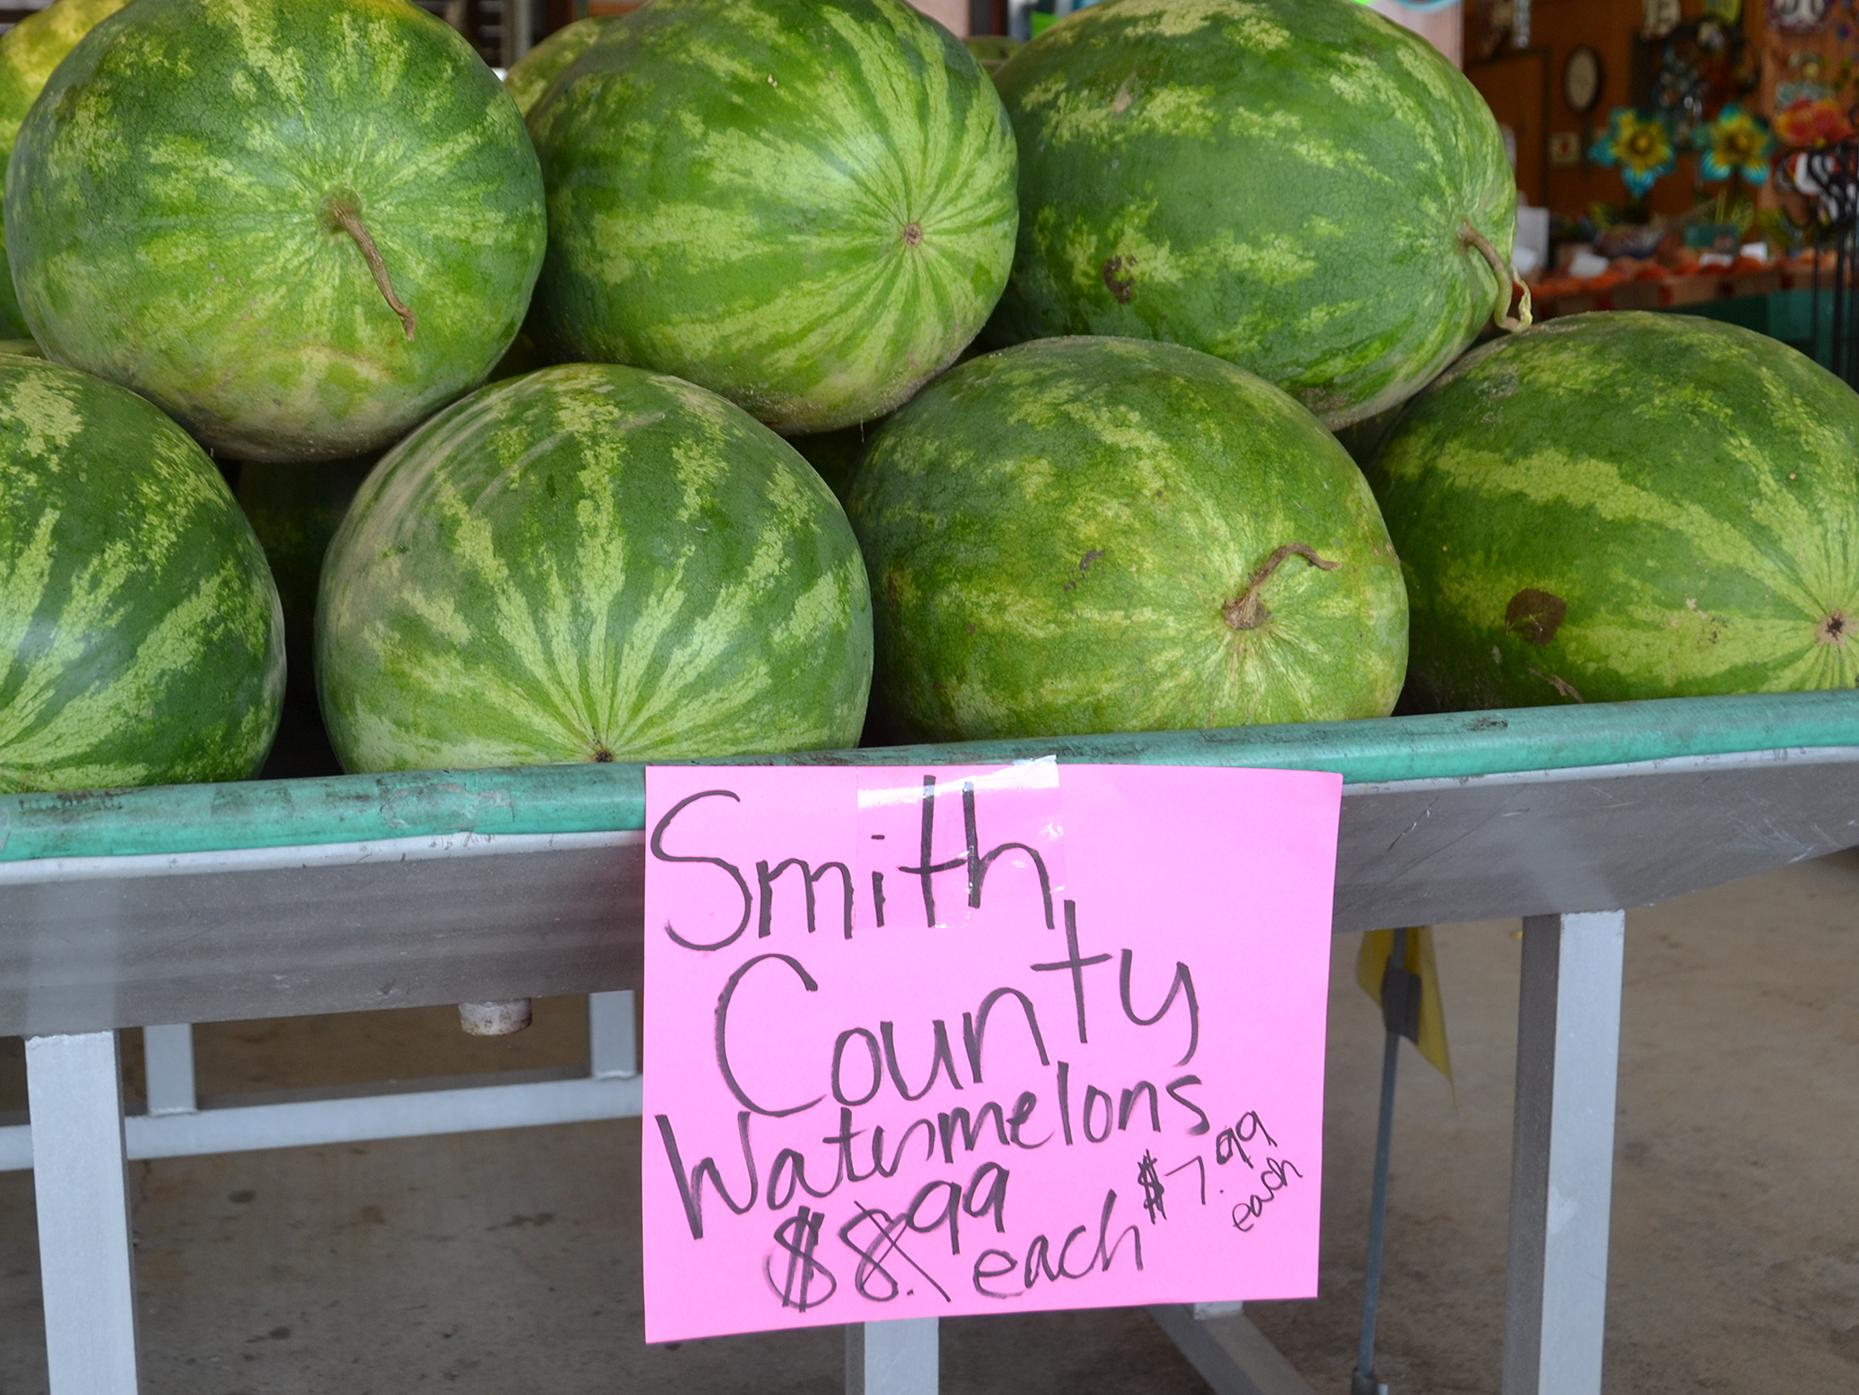 Smith
County
Watermelons
$8.99 each
$7.99
each